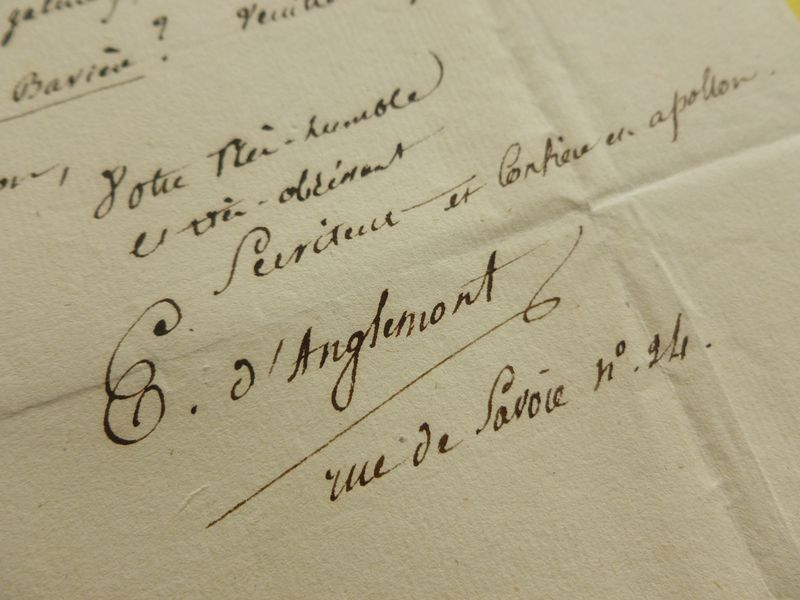 Bavière ? Veuille
Votre très-humble
et très-obéissant
Serviteur et Confrère en apollon.
E. d'Anglemont
rue de Savoie n° 24.